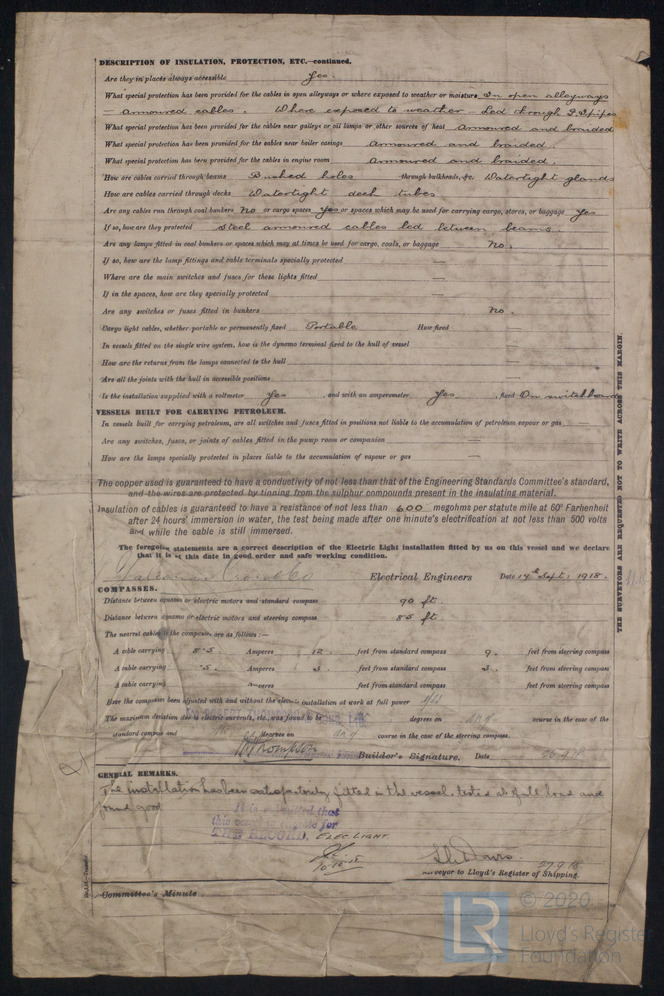 DESCRIPTION OF INSULATION, PROTECTION, ETC.—continued.
Are they in places always accessible Yes.
What special protection has been provided for the cables in open alleyways or where exposed to weather or moisture In open alleyways
— armoured cables. Where exposed to weather — led through G.I. pipes
What special protection has been provided for the cables near galleys or oil lamps or other sources of heat Armoured and braided
What special protection has been provided for the cables near boiler casings Armoured and braided.
What special protection has been provided for the cables in engine room Armoured and braided.
How are cables carried through beams Bushed holes through bulkheads, &c. Watertight glands
How are cables carried through decks Watertight deck tubes
Are any cables run through coal bunkers No or cargo spaces Yes or spaces which may be used for carrying cargo, stores, or baggage Yes
If so, how are they protected Steel armoured cables led between beams.
Are any lamps fitted in coal bunkers or spaces which may at times be used for cargo, coals, or baggage No.
If so, how are the lamp fittings and cable terminals specially protected —
Where are the main switches and fuses for these lights fitted —
If in the spaces, how are they specially protected —
Are any switches or fuses fitted in bunkers No.
Cargo light cables, whether portable or permanently fixed Portable How fixed —
In vessels fitted on the single wire system, how is the dynamo terminal fixed to the hull of vessel —
How are the returns from the lamps connected to the hull —
Are all the joints with the hull in accessible positions —
Is the installation supplied with a voltmeter Yes , and with an amperemeter Yes , fixed On switchboard
VESSELS BUILT FOR CARRYING PETROLEUM.
In vessels built for carrying petroleum, are all switches and fuses fitted in positions not liable to the accumulation of petroleum vapour or gas —
Are any switches, fuses, or joints of cables fitted in the pump room or companion —
How are the lamps specially protected in places liable to the accumulation of vapour or gas —
The copper used is guaranteed to have a conductivity of not less than that of the Engineering Standards Committee's standard,
and the wires are protected by tinning from the sulphur compounds present in the insulating material.
Insulation of cables is guaranteed to have a resistance of not less than 600 megohms per statute mile at 60° Farhenheit
after 24 hours' immersion in water, the test being made after one minute's electrification at not less than 500 volts
and while the cable is still immersed.
The foregoing statements are a correct description of the Electric Light installation fitted by us on this vessel and we declare
that it is at this date in good order and safe working condition.
Electrical Engineers Date 14th Sept: 1918.
COMPASSES.
Distance between dynamo or electric motors and standard compass 90 ft.
Distance between dynamo or electric motors and steering compass 85 ft.
The nearest cables to the compasses are as follows:—
A cable carrying 8.5 Amperes 12 feet from standard compass 9. feet from steering compass
A cable carrying .5. Amperes 3 feet from standard compass 3. feet from steering compass
A cable carrying Amperes feet from standard compass feet from steering compass
Have the compasses been adjusted with and without the electric installation at work at full power Yes
The maximum deviation due to electric currents, etc., was found to be degrees on any course in the case of the
standard compass and degrees on any course in the case of the steering compass.
Thompson Builder's Signature. Date
GENERAL REMARKS.
The installation has been satisfactorily fitted in the vessel, tested at full load and
found good
It is submitted that
this
THE RECORD. ELEC LIGHT.
10.12.18
27.9.18
Surveyor to Lloyd's Register of Shipping.
Committee's Minute
THE SURVEYORS ARE REQUESTED NOT TO WRITE ACROSS THIS MARGIN.
© 2020
Lloyd's Register
Foundation
LR